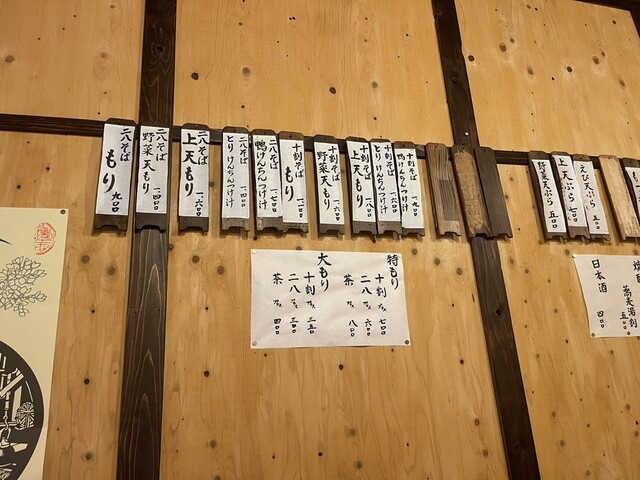 二八そば
もり 九〇〇
二八そば
野菜天もり 一四〇〇
二八そば
上天もり 一六〇〇
二八そば
とりけんちんつけ汁 一四〇〇
二八そば
鴨けんちんつけ汁 一七〇〇
十割そば
もり 一一〇〇
十割そば
野菜天もり 一六〇〇
十割そば
上天もり 一八〇〇
十割そば
とりけんちんつけ汁 一六〇〇
十割そば
鴨けんちんつけ汁 一九〇〇
野菜天ぷら 五〇〇
上天ぷら 七〇〇
えび天ぷら 五〇〇
特もり
十割 プラス 七〇〇
二八 プラス 六〇〇
茶 プラス 八〇〇
大もり
十割 プラス 三五〇
二八 プラス 三〇〇
茶 プラス 四〇〇
蕎麦湯割 五〇〇
日本酒 四〇〇